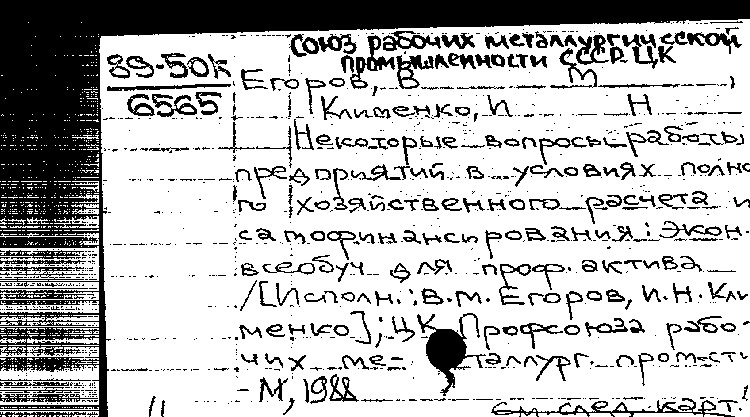 Союз рабочих металлургической
промышленности СССР. ЦК
89-50к
6565
Егоров, В М ,
Клименко, И Н
Некоторые вопросы работы
предприятий в условиях полно-
го хозяйственного расчета и
самофинансирования: Экон.
всеобуч для проф. актива
/[Исполн.: В.М. Егоров, И.Н. Кли-
менко]; ЦК Профсоюза рабо-
чих ме- таллург. пром-сти
- М, 1988
см. след. карт.